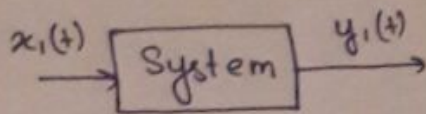 x₁(t)
System
y₁(t)